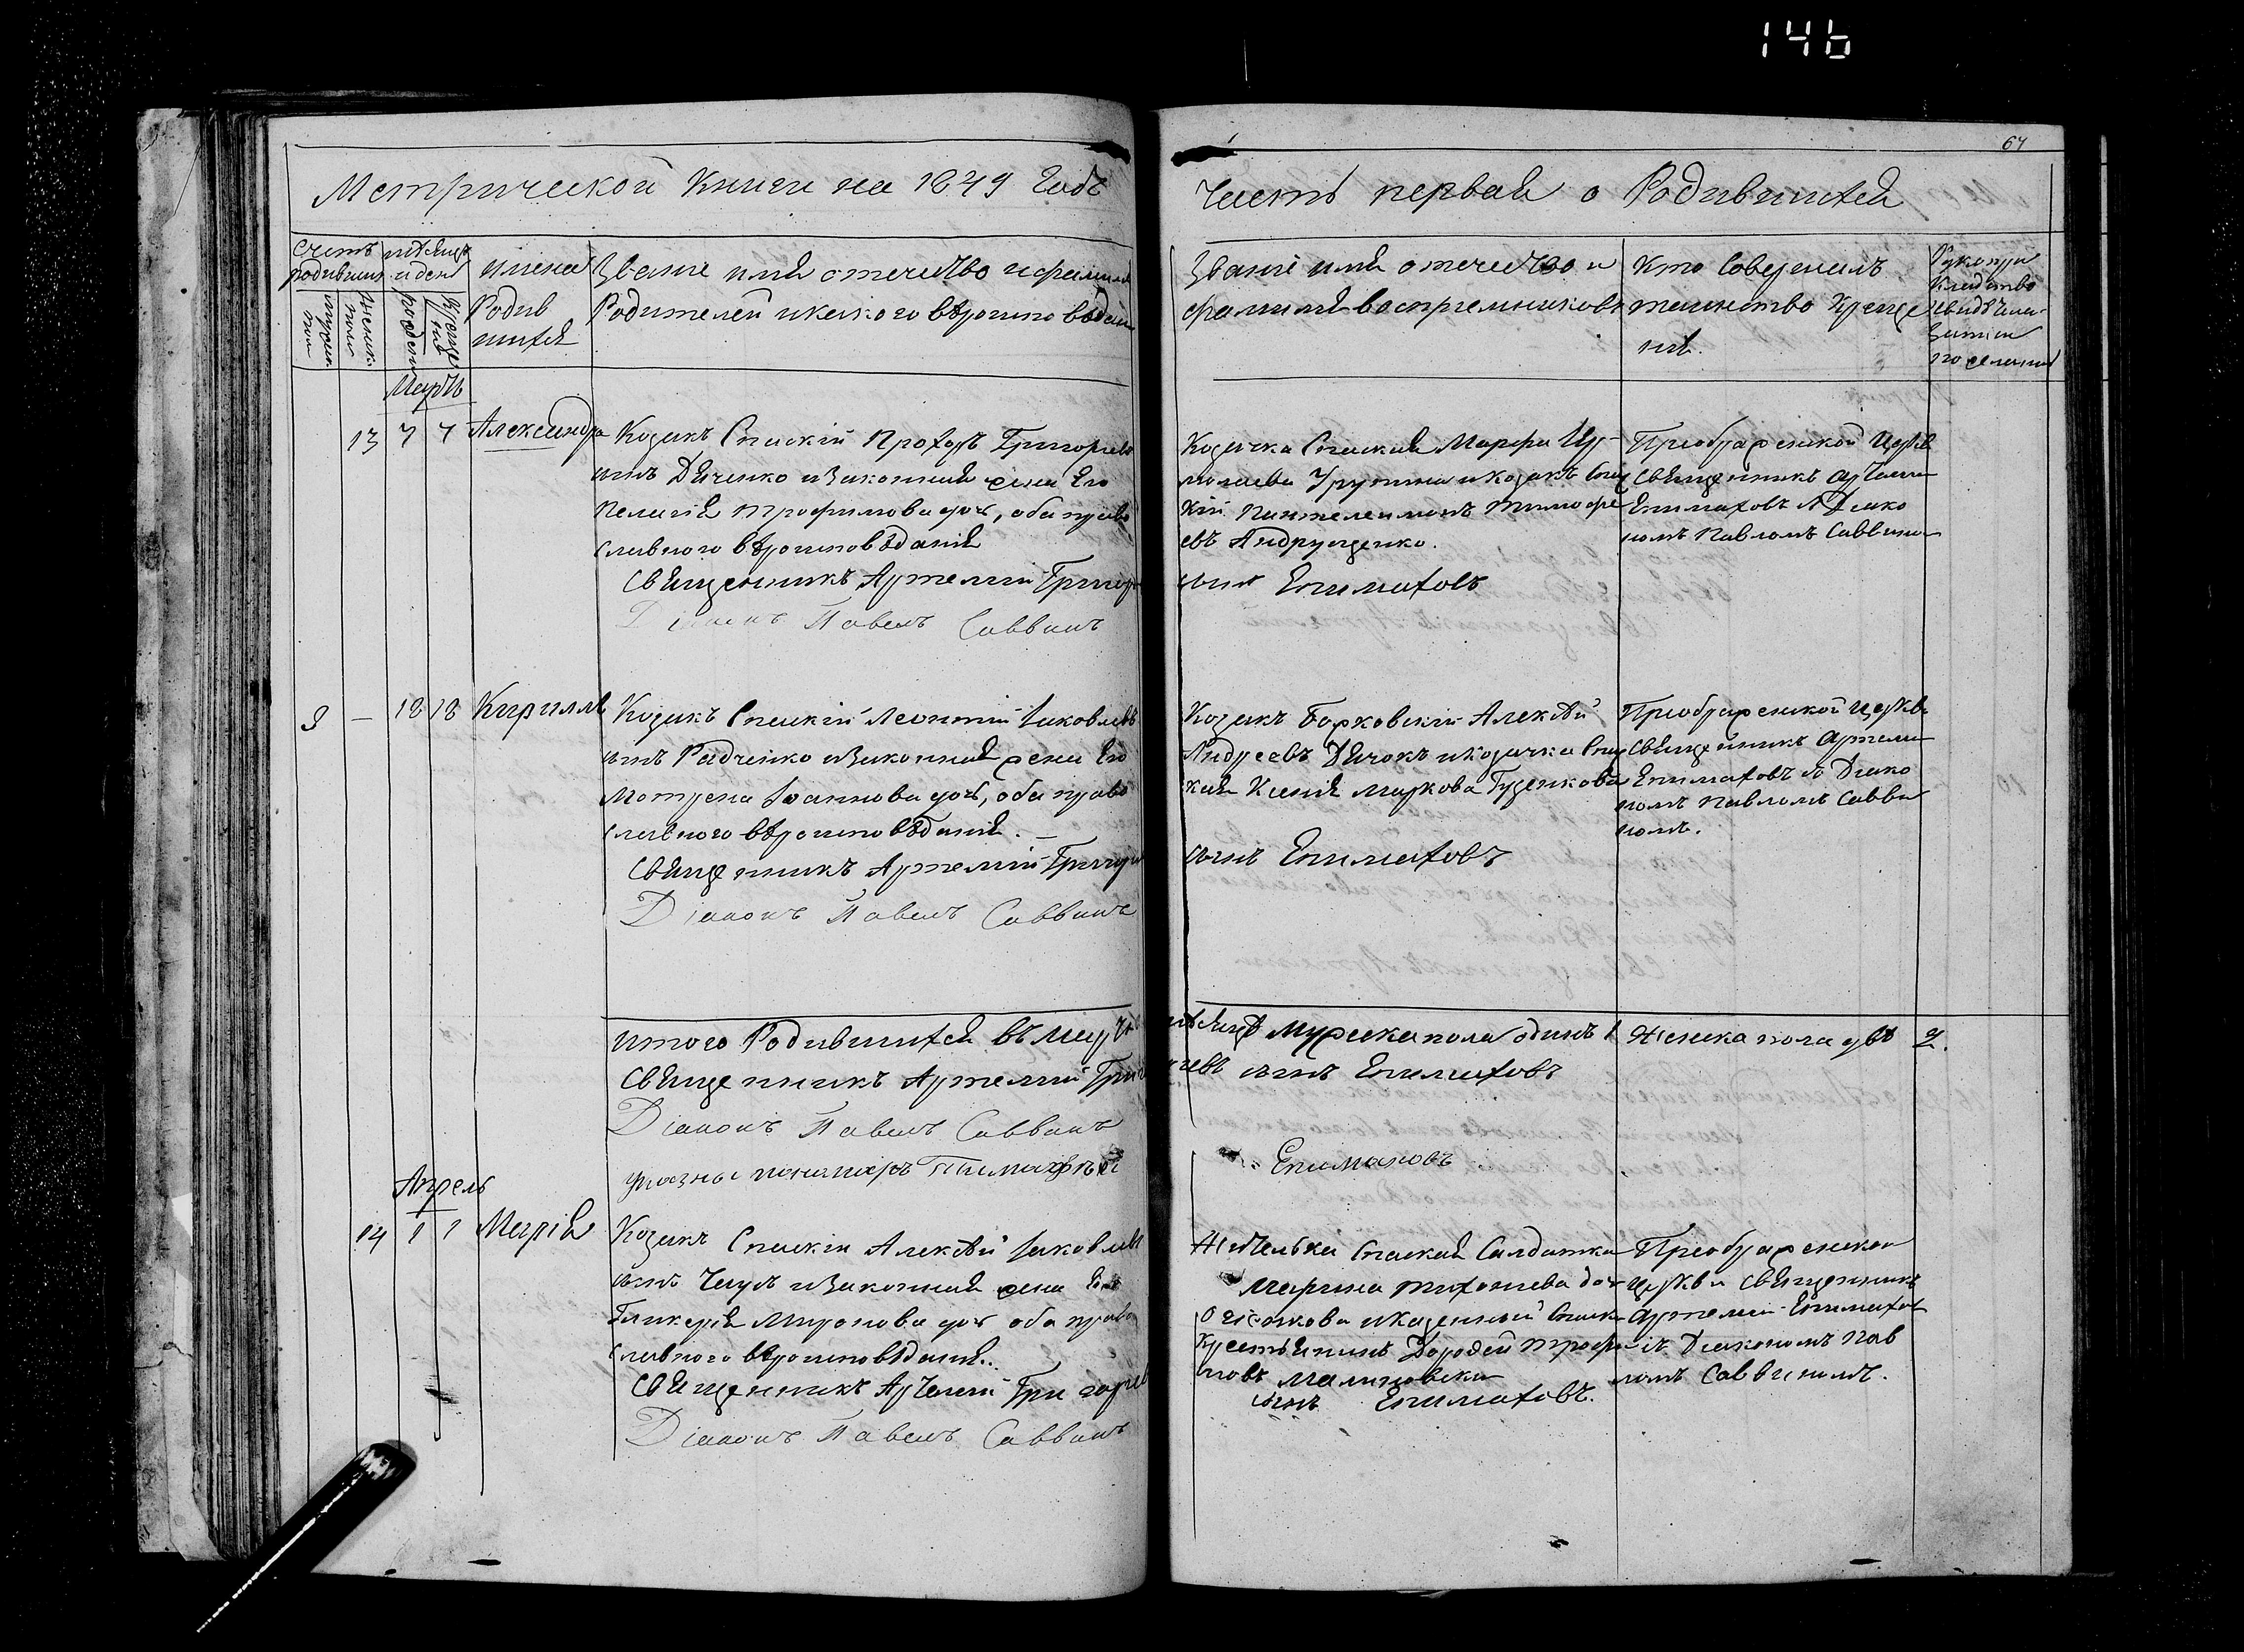 146
67
Метрической Книги на 1849 Годъ
Часть первая о Родившихся
Счетъ родившихся
мѣсяцъ и день
имена Родившихся
Званіе имя отечество и фамилія
Родителей и какого вѣроисповѣданія
Званіе имя отечество и
фамилія воспріемниковъ
Кто Совершалъ
таинство Креще
нія.
мужеска пола
женска пола
рожденія
крещенія
Мартъ
13 7 7 Александра
Козакъ Спаскій Прохоръ Григорьевъ
сынъ Дяченко и Законная жена Его
Пелагія Трофимова доч, оба право
славного вѣроисповѣданія
Священникъ Артемій Григорь
Діаконъ Павелъ Саввинъ
Козачка Спаская Марфа
и Козакъ Спас
кій Пантелеимонъ Тимофе
евъ Андрущенко.
сынъ Епимаховъ
Преображенской Церкви
Священникъ Артемій
Епимаховъ съ Діако
номъ Павломъ Саввином
8 — 18 18 Кириллъ
Козакъ Спаскій Леонтій Іаковлевъ
сынъ Радченко и Законная жена Его
Мотрена Іоаннова доч, оба право
славного вѣроисповѣданія.
Священникъ Артемій Григорь
Діаконъ Павелъ Саввинъ
Козакъ Борковскій Алексѣй
Андреевъ Дячокъ и Козачка Спас
кая Ксенія Маркова Гуденкова
сынъ Епимаховъ
Преображенской Церкви
Священникъ Артемій
Епимаховъ съ Діако
номъ Павломъ Савви
номъ.
Итого Родившихся въ Мартѣ
мѣсяцѣ Мужеска пола одинъ 1 Женска пола двѣ 2.
Священникъ Артемій Григо
рьевъ сынъ Епимаховъ
Діаконъ Павелъ Саввинъ
пономарь
Епимаховъ
Апрель
14 1 1 Марія
Козакъ Спаскій Алексѣй Іаковлевъ
сынъ Чауръ и Законная жена Его
Гликерія Миронова доч оба право
славного вѣроисповѣданія.
Священникъ Артемій Григорьев
Діаконъ Павелъ Саввинъ
Жителька Спаская Салдатка
Марина Тихонева доч
и казенный Спаск
Крестьянинъ Дорофей Трофи
мовъ Малиновскій
сынъ Епимаховъ.
Преображенской
Церкви Священникъ
Артемій Епимахов
съ Діакономъ Пав
ломъ Саввиномъ.